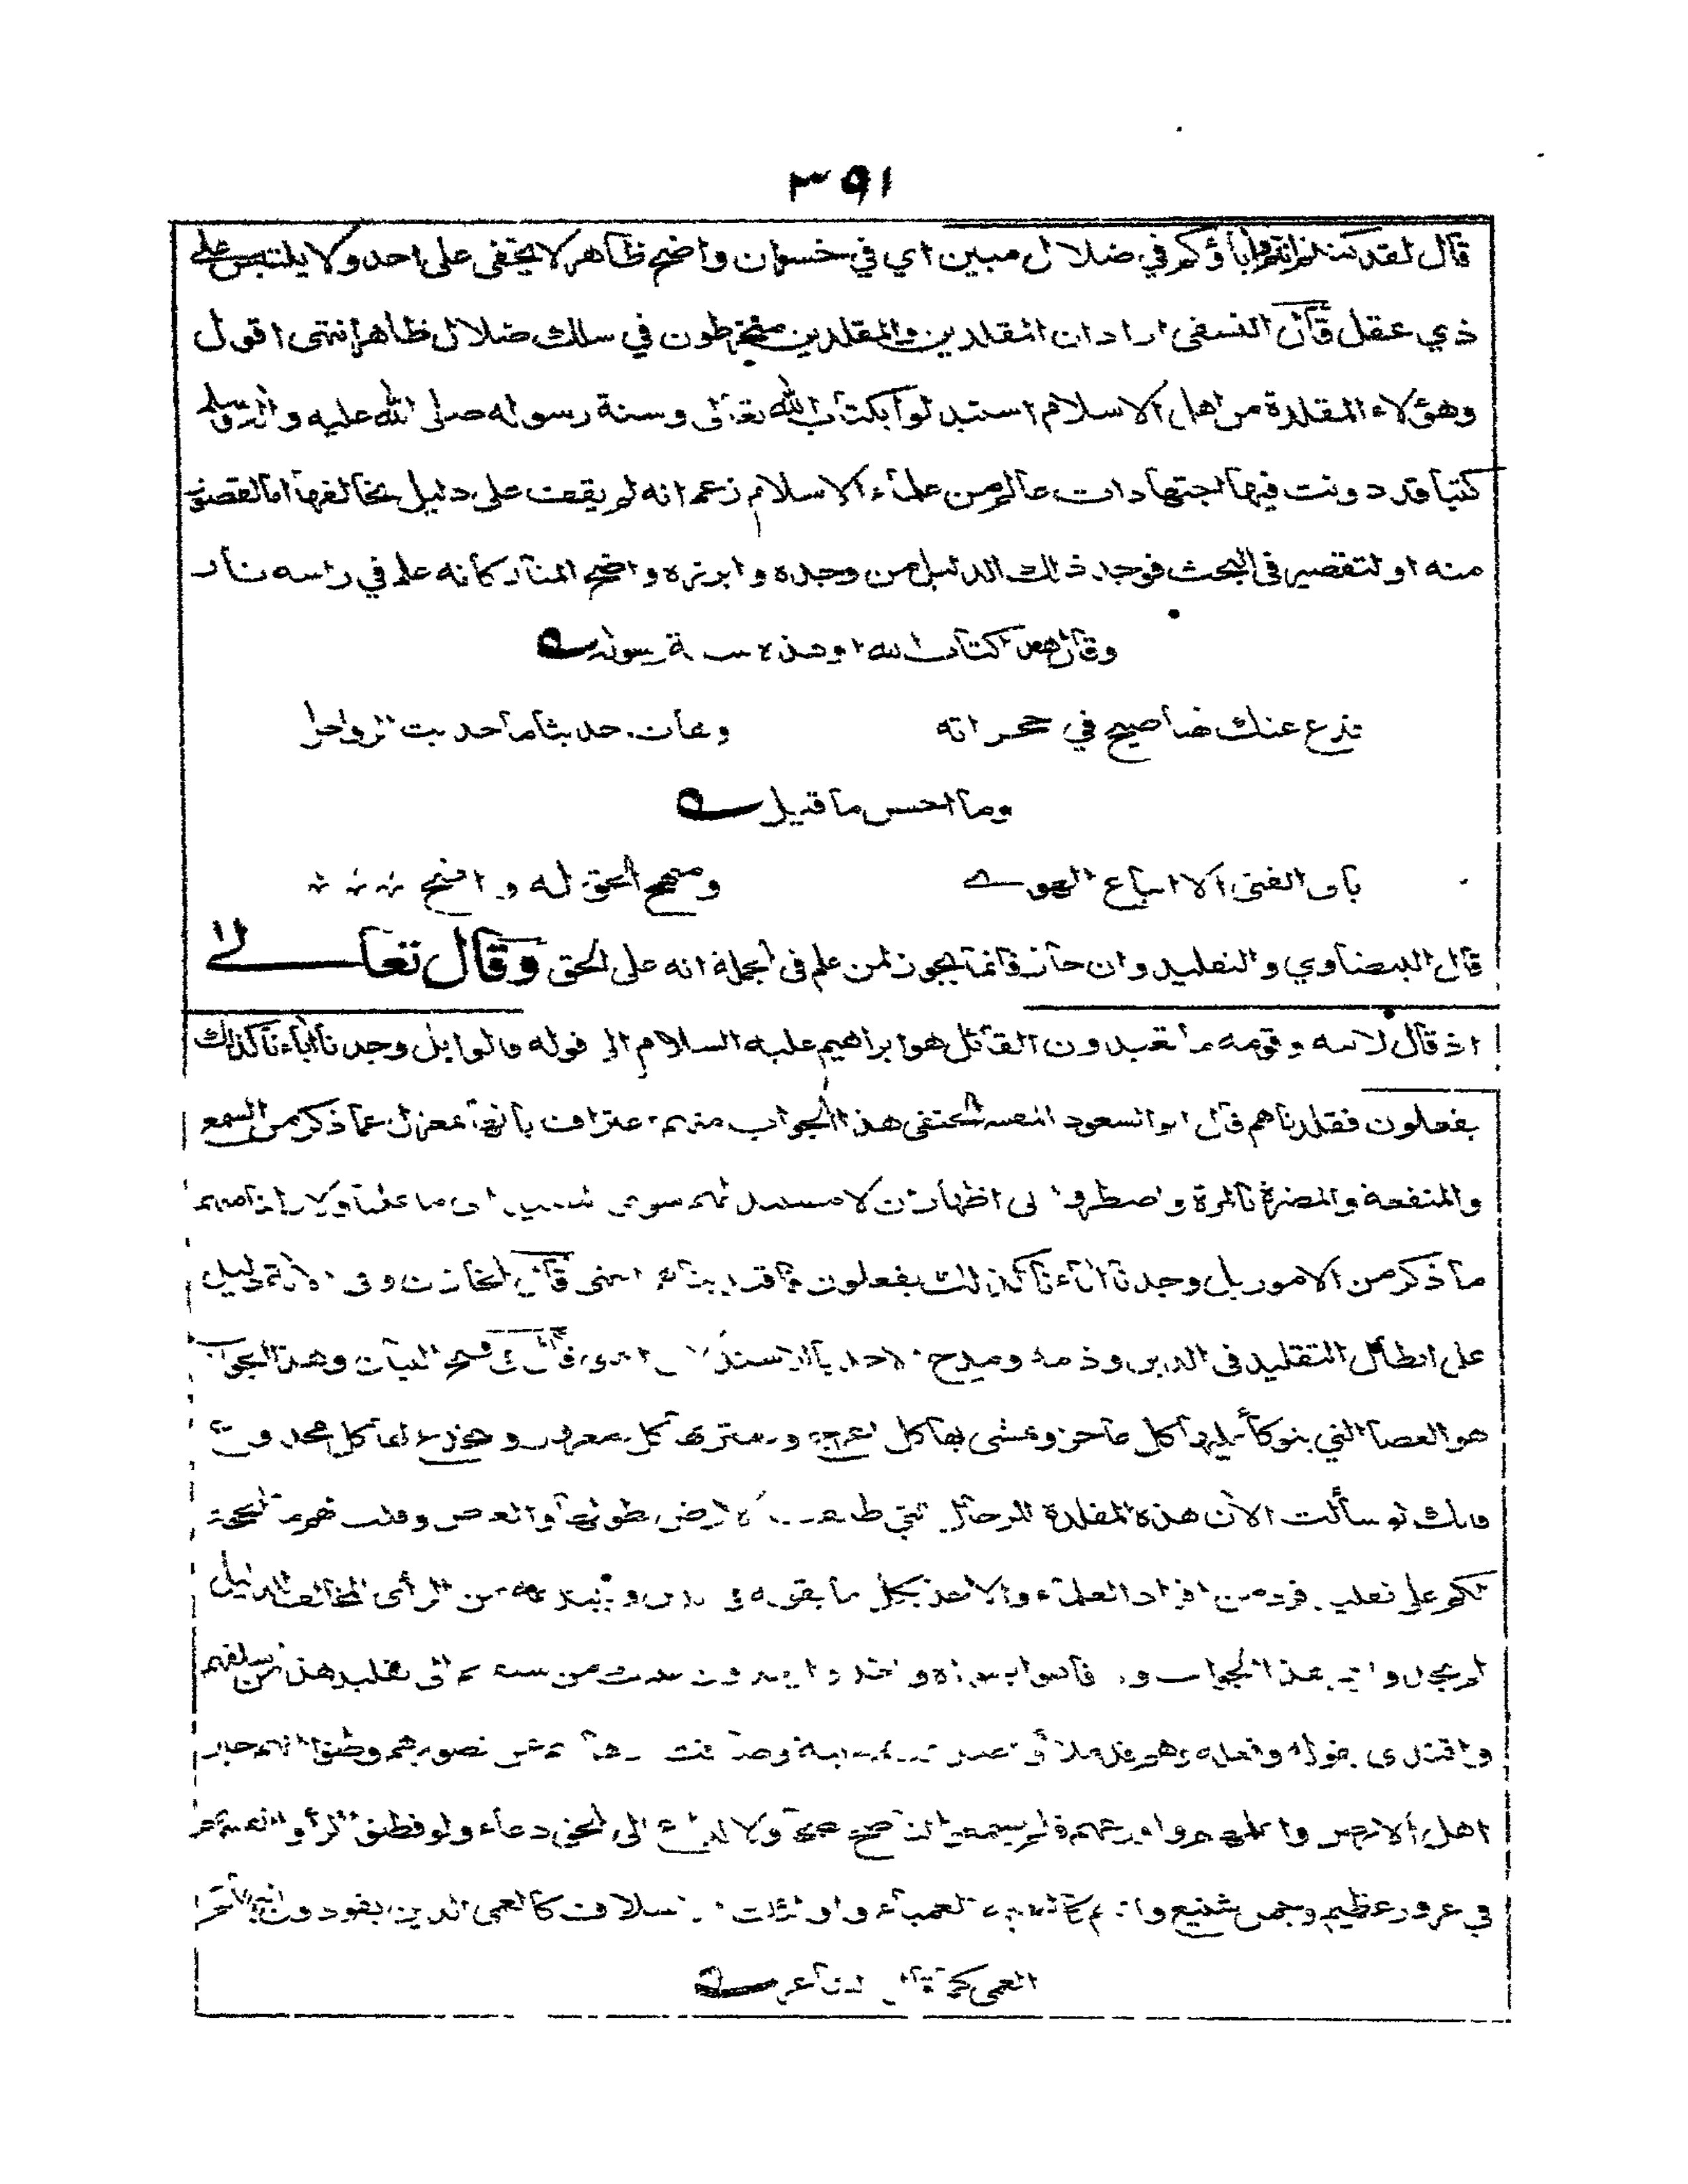 ٣٩١
قال لقد كنتم انتم وآباؤكم في ضلال مبين اي في خسران واضح ظاهر لا يخفى على احد ولا يلتبس على
ذي عقل قال النسفى اراد ان المقلدين والمقلدين منخرطون في سلك ضلال ظاهر انتهى اقول
وهؤلاء المقلدة من اهل الاسلام استبدلوا بكتاب الله تعالى وسنة رسوله صلى الله عليه واله وسلم
كتبا قد دونت فيها اجتهادات عالم من علماء الاسلام زعم انه لم يقف على دليل يخالفها اما لقصور
منه او لتقصير فى البحث فوجد ذلك الدليل من وجده وابرزه واضح المنار كأنه علم في راسه نار
وقال هذا كتاب الله او هذه سنة رسوله
فدع عنك نهبا صيح في حجراته وهات حديثا ما حديث الرواحل
وما احسن ما قيل
يأبى الفتى الا اتباع الهوى ومنهج الحق له واضح
قال البيضاوي والتقليد وان جاز فانما يجوز لمن علم فى الجملة انه على الحق وقال تعالى
اذ قال لابيه وقومه ما تعبدون القائل هو ابراهيم عليه السلام الى قوله قالوا بل وجدنا آباءنا كذلك
يفعلون فقلدناهم قال ابو السعود المفسر الحنفى هذا الجواب منهم اعتراف بأنها بمعزل عما ذكر من السمع
والمنفعة والمضرة بالمرة واضطروا الى اظهار ان لا مستند لهم سوى التقليد اى ما علمنا ولا راينا منهم
ما ذكر من الامور بل وجدنا آباءنا كذلك يفعلون فاقتدينا بهم انتهى قال الخازن وفى الآية دليل
على ابطال التقليد فى الدين وذمه ومدح الاخذ بالاستدلال انتهى قال فى فتح البيان وهذا الجواب
هو العصا التي يتوكأ عليها كل عاجز ويمشى بها كل اعرج ويغتر بها كل مغرور وينخدع لها كل مخدوع
فانك لو سألت الآن هذه المقلدة للرجال التي طبقت الارض بطولها والعرض وقلت لهم ما الحجة
لكم على تقليد فرد من افراد العلماء والاخذ بكل ما يقوله فى الدين ويبتدعه من الرأى المخالف للدليل
لم يجدوا غير هذا الجواب ولا فاهوا بسواه واخذوا يعددون عليك من سبقهم الى تقليد هذا من سلفهم
واقتدى بقوله وفعله وهم قد ملأوا صدورهم هيبة وضاقت اذهانهم عن تصورهم وظنوا انهم خير
اهل الارض واعلمهم واورعهم فلم يسمعوا لناصح نصحا ولا لداع الى الحق دعاء ولو فطنوا لرأوا انفسهم
في غرور عظيم وجهل شنيع وانهم كالبهيمة العمياء واولئك الاسلاف كالعمى الذين يقودون البهائم
العمى كما قال الشاعر